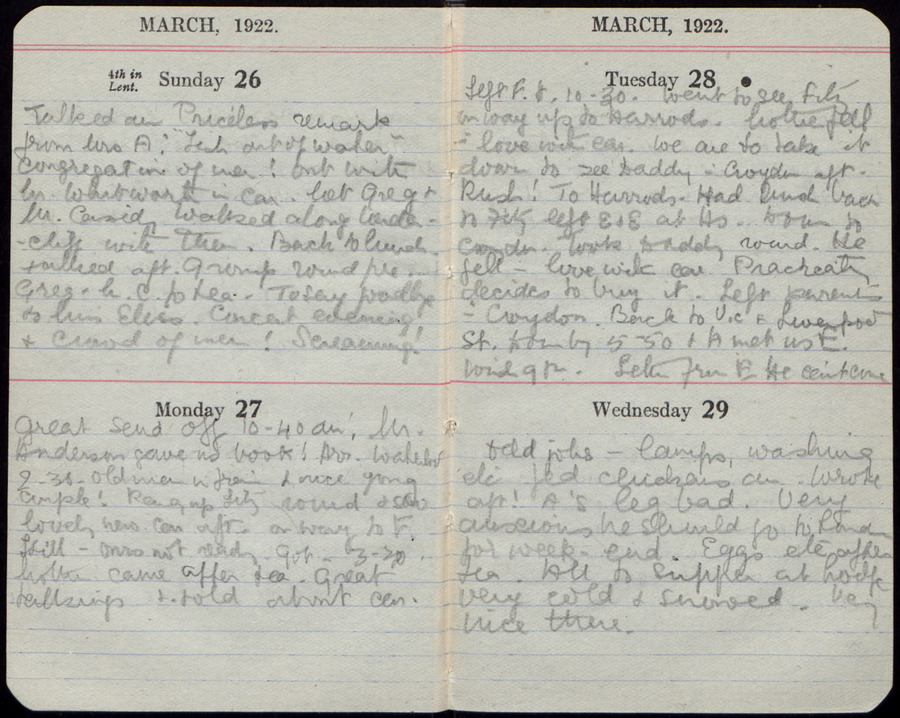 MARCH, 1922.
4th in Lent. Sunday 26
Talked am Priceless remark
from Mrs A! "Fish out of water"
congregation of men! but with
Mr. Whitworth in Car. Met Greg &
Mr. walked along under
-cliff with them. Back to lunch
& talked aft. Gramp round pie
Greg - to tea. To say goodbye
to Miss Eless. Concert evening
& crowd of men! Screaming!
Monday 27
Great send off 10-40 am! Mr.
Anderson gave us book! Arr. Waterloo
2-30. Old man in train & nice young
couple! Rang up Fitz round & saw
lovely new car aft. on way to F.
Still - ours not ready 3-30.
came after tea. Great
talkings & told about car.
MARCH, 1922.
Tuesday 28
Left F. S. 10-30. Went to see Fitz
on way up to Harrods. fell
- love with car. We are to take it
down to see Daddy - Croydon aft.
Rush! To Harrods. Had lunch back
to Fitz left E & E at Hs. Down to
Croydon. Took Daddy round. He
fell - love with car. Practically
decides to buy it. Left parents
- Croydon. Back to Vic & Liverpool
St. Down by 5-50 & A met us E.
Letter from E. He can't come
Wednesday 29
Odd jobs - lamps, washing
etc fed chickens am. Wrote
aft! A's leg bad. Very
anxious he should go to
for week-end. Eggs etc after
tea. All to supper at
very cold & snowed. Very
nice there.